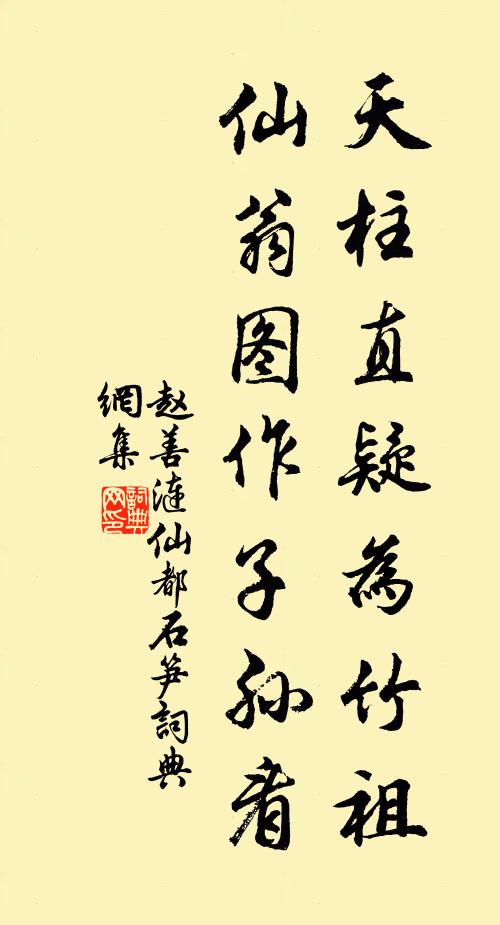 天柱直疑為竹祖
仙翁图作子孙看
赵善涟仙都石笋詞典
網集
詞典
网印